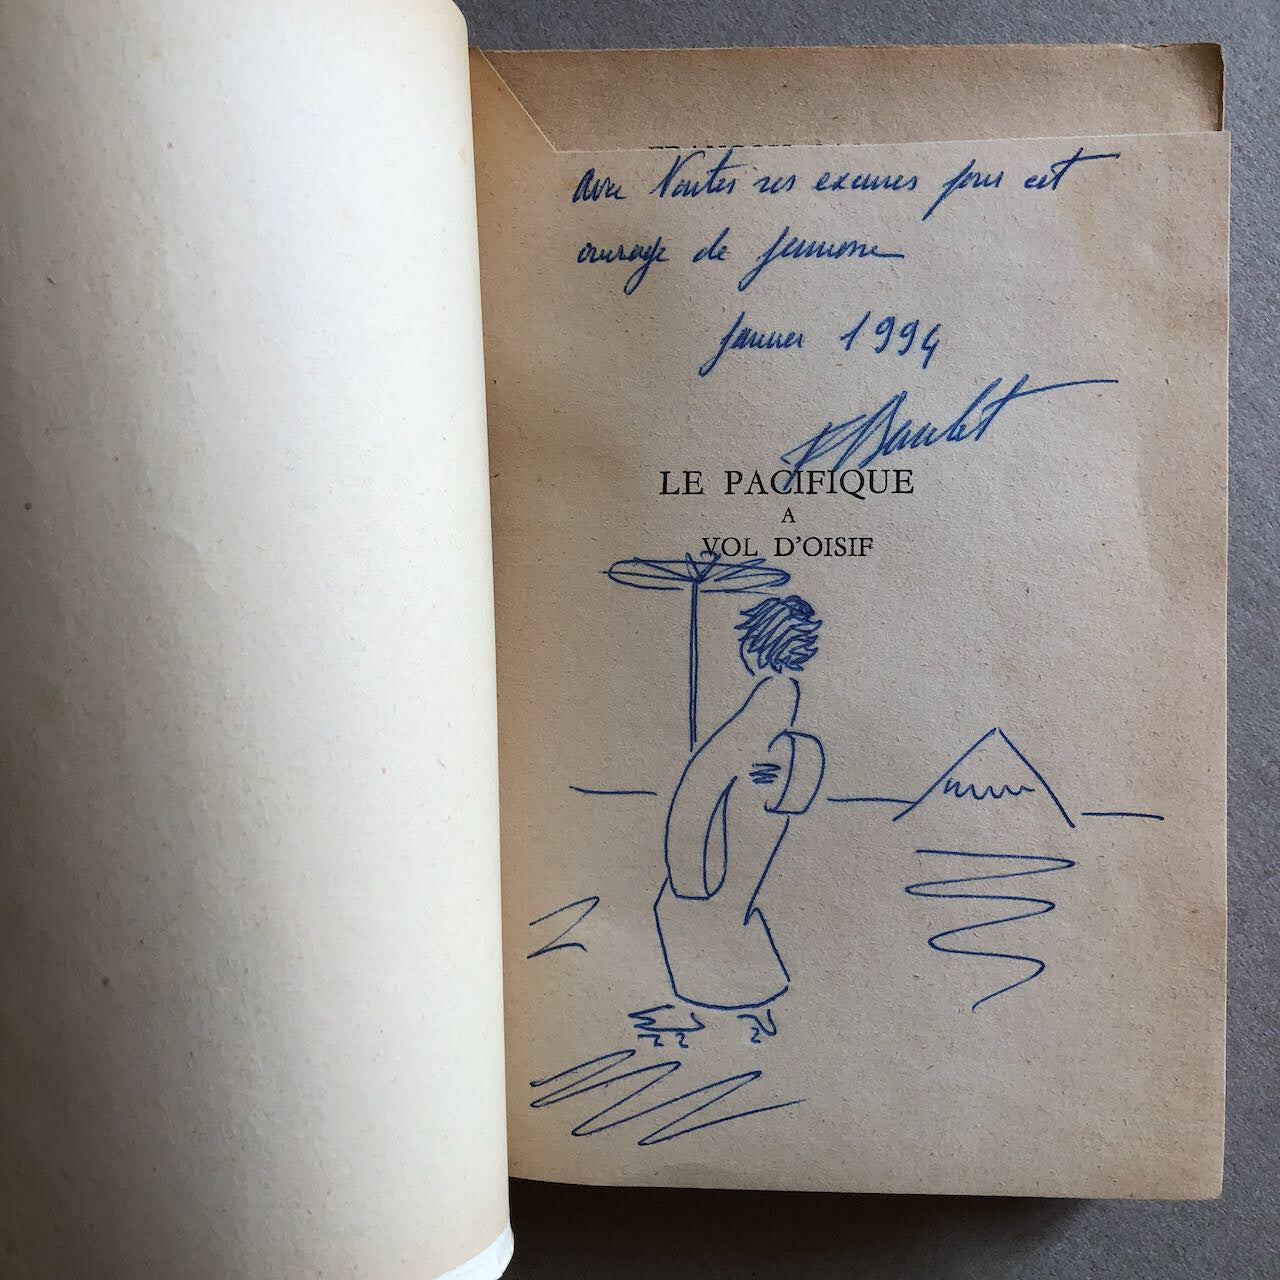 avec toutes ses excuses pour cet
ouvrage de jeunesse
janvier 1994
LE PACIFIQUE
A
VOL D'OISIF